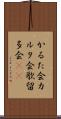 かるた会カ
ルタ会歌留
多会